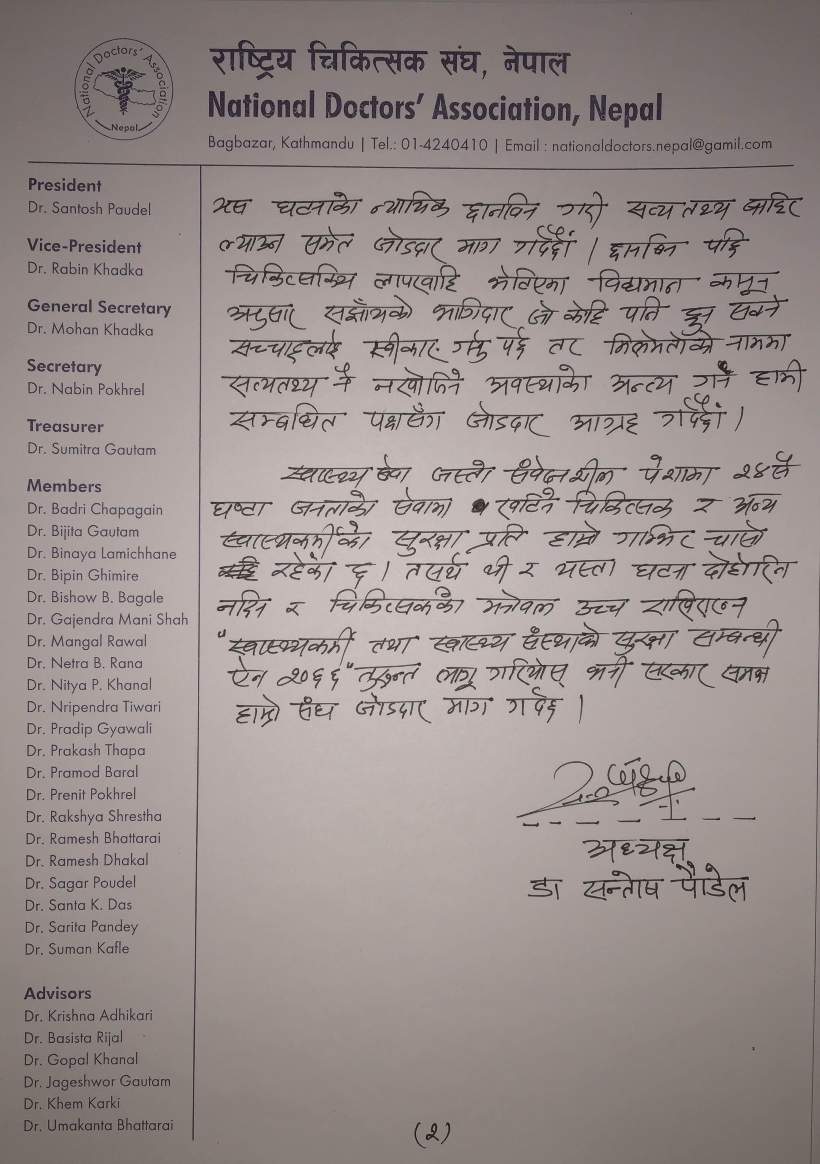 National Doctors' Association
Nepal
राष्ट्रिय चिकित्सक संघ, नेपाल
National Doctors' Association, Nepal
Bagbazar, Kathmandu | Tel.: 01-4240410 | Email : nationaldoctors.nepal@gamil.com
President
Dr. Santosh Paudel
Vice-President
Dr. Rabin Khadka
General Secretary
Dr. Mohan Khadka
Secretary
Dr. Nabin Pokhrel
Treasurer
Dr. Sumitra Gautam
Members
Dr. Badri Chapagain
Dr. Bijita Gautam
Dr. Binaya Lamichhane
Dr. Bipin Ghimire
Dr. Bishow B. Bagale
Dr. Gajendra Mani Shah
Dr. Mangal Rawal
Dr. Netra B. Rana
Dr. Nitya P. Khanal
Dr. Nripendra Tiwari
Dr. Pradip Gyawali
Dr. Prakash Thapa
Dr. Pramod Baral
Dr. Prenit Pokhrel
Dr. Rakshya Shrestha
Dr. Ramesh Bhattarai
Dr. Ramesh Dhakal
Dr. Sagar Poudel
Dr. Santa K. Das
Dr. Sarita Pandey
Dr. Suman Kafle
Advisors
Dr. Krishna Adhikari
Dr. Basista Rijal
Dr. Gopal Khanal
Dr. Jageshwor Gautam
Dr. Khem Karki
Dr. Umakanta Bhattarai
यस घटनाको न्यायिक छानविन गरी सत्य तथ्य बाहिर
ल्याउन समेत जोडदार माग गर्दछौं । छानविन पछि
चिकित्सकिय लापरवाहि भेटिएमा विद्यमान कानून
अनुसार सजाँयको भागिदार जो केहि पनि हुन सक्ने
सच्चाइलाई स्वीकार गर्नु पर्छ तर मिलेमतोको नाममा
सत्यतथ्य नै नखोजिने अवस्थाको अन्त्य गर्न हामी
सम्बन्धित पक्षसँग जोडदार आग्रह गर्दछौं ।
स्वास्थ्य सेवा जस्तो संवेदनशील पेशामा २४सै
घण्टा जनताको सेवामा खटिने चिकित्सक र अन्य
स्वास्थ्यकर्मीको सुरक्षा प्रति हाम्रो गम्भिर चासो
रहेको छ । तसर्थ यी र यस्ता घटना दोहोरिन
नदिन र चिकित्सकको मनोवल उच्च राखिराख्न
"स्वास्थ्यकर्मी तथा स्वास्थ्य संस्थाको सुरक्षा सम्बन्धी
ऐन २०६६" तुरुन्त लागू गरियोस् भनी सरकार समक्ष
हाम्रो संघ जोडदार माग गर्दछ ।
अध्यक्ष
डा सन्तोष पौडेल
(२)